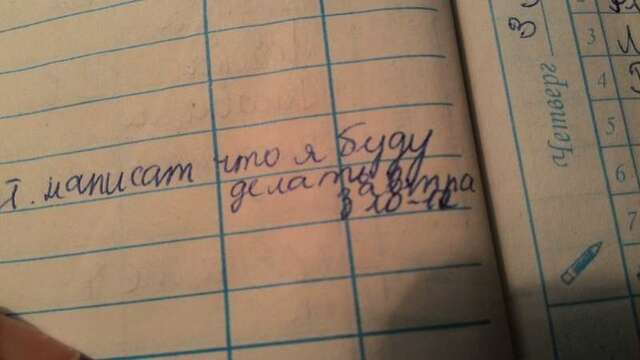 I. написат что я буду
делать завтра
3 10-12
3
Четверг
3
4
5
6
7